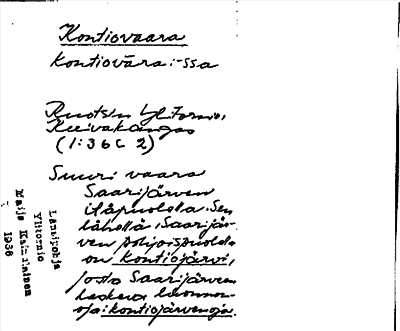 Kontiovaara
Kontiovāra: -ssa
Ruotsin Ylitornio,
Keivakangas
(1:36 C 2)
Suuri vaara
Saarijärven
itäpuolella. Sen
lähellä, Saarijär-
ven pohjoispuolella
on Kontiojärvi,
josta Saarijärveen
laskeva luonnon-
oja: kontiojärvenoja.
Länsipohja
Ylitornio
Maija Kainulainen
1938